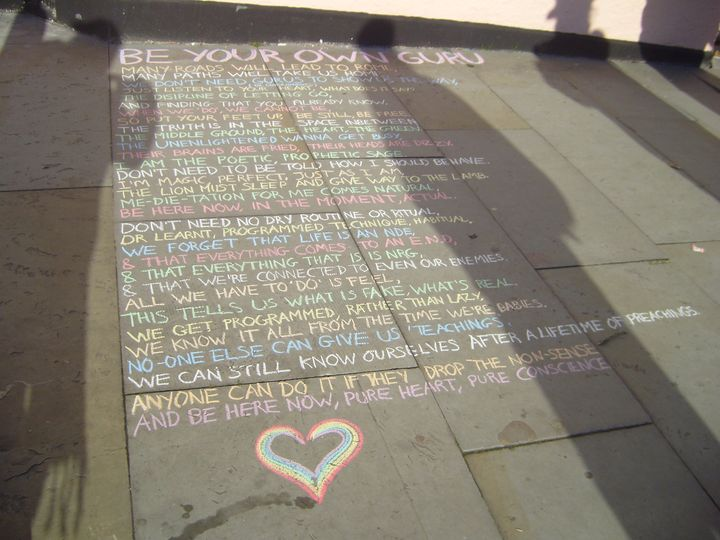 BE YOUR OWN GURU
MANY ROADS WILL LEAD TO ROME
MANY PATHS WILL TAKE US HOME.
WE DON'T NEED GURUS TO SHOW US THE WAY,
JUST LISTEN TO YOUR HEART, WHAT DOES IT SAY?
THE DISIPLINE OF LETTING GO,
AND FINDING THAT YOU ALREADY KNOW.
WHEN WE DO, WE CANNOT BE
SO PUT YOUR FEET UP, BE STILL, BE FREE.
THE TRUTH IS IN THE SPACE INBETWEEN
THE MIDDLE GROUND, THE HEART, THE GREEN
THE UNENLIGHTENED WANNA GET BUSY
THEIR BRAINS ARE FRIED, THEIR HEADS ARE DIZZY.
I AM THE POETIC, PROPHETIC SAGE
DON'T NEED TO BE TOLD HOW I SHOULD BEHAVE.
I'M MAGIC, PERFECT, JUST AS I AM
THE LION MUST SLEEP AND GIVE WAY TO THE LAMB.
ME-DIE-TATION FOR ME COMES NATURAL,
BE HERE NOW, IN THE MOMENT, ACTUAL.
DON'T NEED NO DRY ROUTINE OR RITUAL,
OR LEARNT, PROGRAMMED TECHNIQUE, HABITUAL,
WE FORGET THAT LIFE IS AN NDE,
& THAT EVERYTHING COMES TO AN E.N.D,
& THAT EVERYTHING THAT IS IS NRG,
& THAT WE'RE CONNECTED TO EVEN OUR ENEMIES.
ALL WE HAVE TO 'DO' IS FEEL,
THIS TELLS US WHAT IS FAKE, WHAT'S REAL.
WE GET PROGRAMMED, RATHER THAN LAZY,
WE KNOW IT ALL FROM THE TIME WE'RE BABIES.
NO-ONE ELSE CAN GIVE US 'TEACHINGS'.
WE CAN STILL KNOW OURSELVES AFTER A LIFETIME OF PREACHINGS.
ANYONE CAN DO IT IF THEY DROP THE NON-SENSE
AND BE HERE NOW, PURE HEART, PURE CONSCIENCE